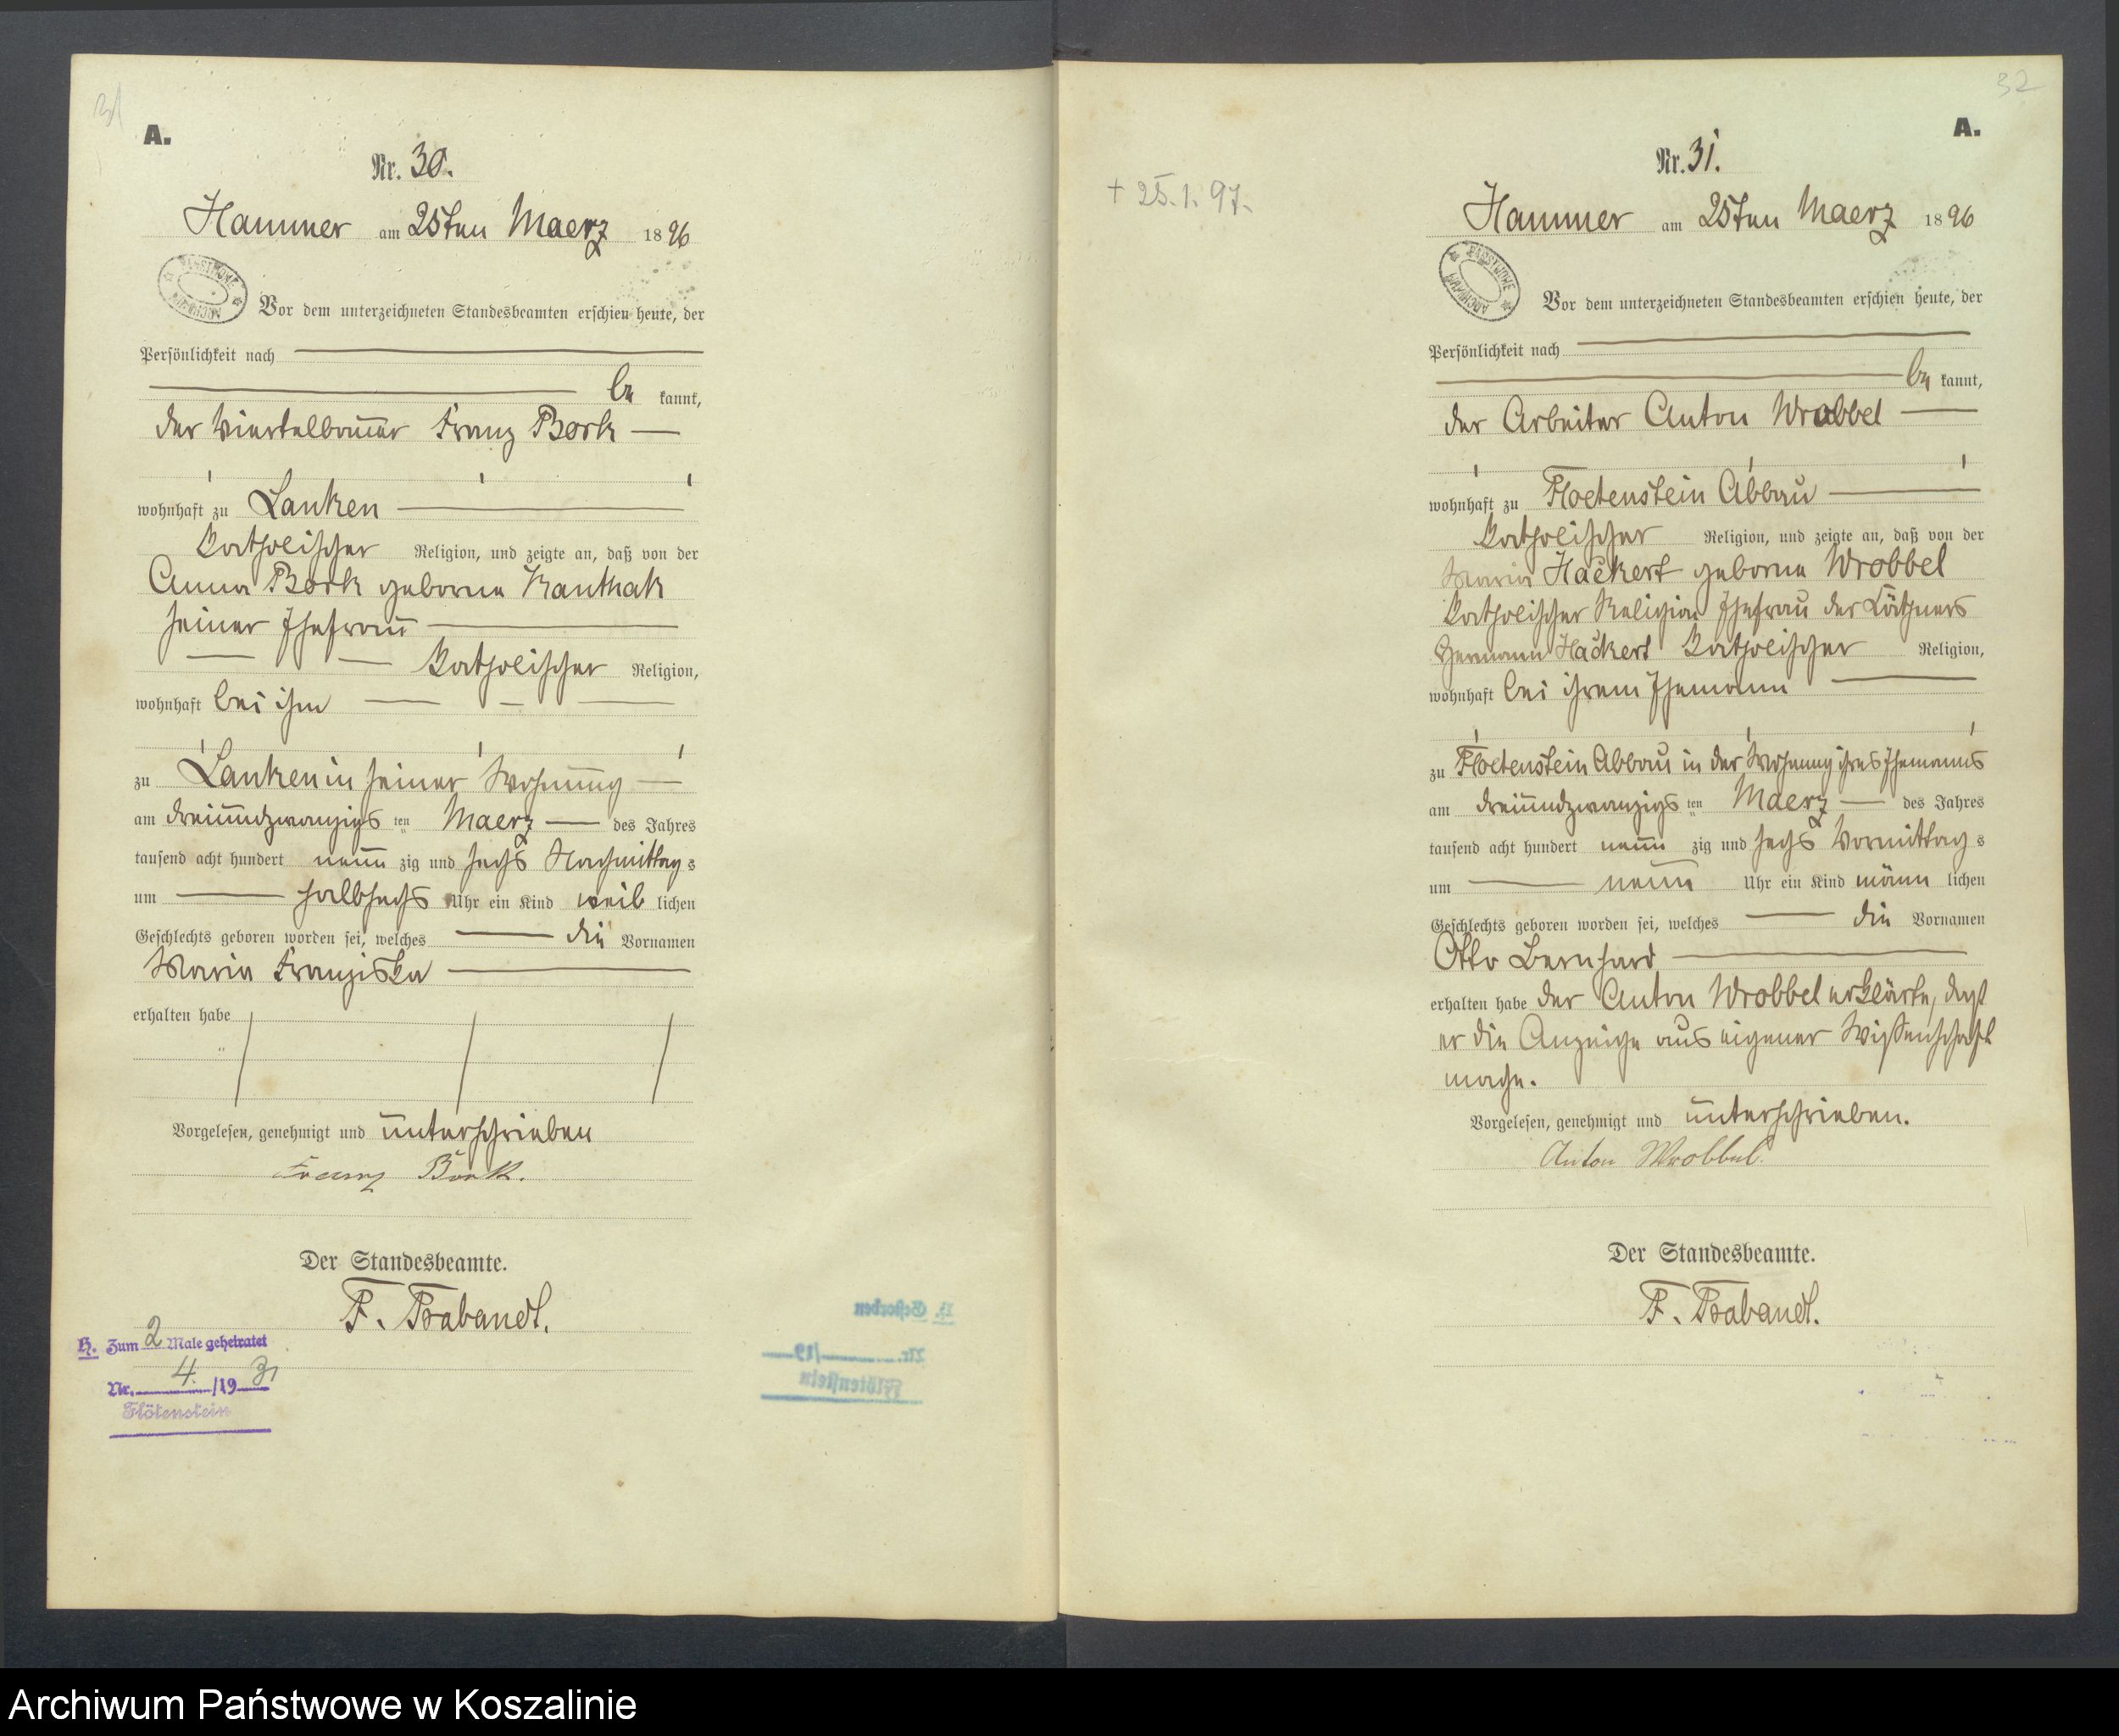 A.
Nr. 30.
Hammer am 25ten Maerz 1896
Vor dem unterzeichneten Standesbeamten erschien heute, der
Persönlichkeit nach
be kannt,
der Viertelbauer Franz Bork
wohnhaft zu Lanken
katholischer Religion, und zeigte an, daß von der
Anna Bork geborne Kanthak
seiner Ehefrau
katholischer Religion,
wohnhaft bei ihm
zu Lanken in seiner Wohnung
am dreiundzwanzigs ten Maerz des Jahres
tausend acht hundert neun zig und sechs Nachmittag s
um halbsechs Uhr ein Kind weib lichen
Geschlechts geboren worden sei, welches die Vornamen
Maria Franziska
erhalten habe
Vorgelesen, genehmigt und unterschrieben
Franz Bork.
Der Standesbeamte.
F. Brabandt.
H. Zum 2 Male geheiratet
Nr. 4. /19 31
Flötenstein
32
A.
+ 25.1.97.
Nr. 31.
Hammer am 25ten Maerz 1896
PAŃSTWOWE ARCHIWUM
Vor dem unterzeichneten Standesbeamten erschien heute, der
Persönlichkeit nach
be kannt,
der Arbeiter Anton Wrobbel
wohnhaft zu Floetenstein Abbau
katholischer Religion, und zeigte an, daß von der
Maria Hackert geborne Wrobbel
katholischer Religion Ehefrau des Käthners
Hermann Hackert katholischer Religion,
wohnhaft bei ihrem Ehemann
zu Floetenstein Abbau in der Wohnung ihres Ehemanns
am dreiundzwanzigs ten Maerz des Jahres
tausend acht hundert neun zig und sechs Vormittag s
um neun Uhr ein Kind männ lichen
Geschlechts geboren worden sei, welches die Vornamen
Otto Bernhard
erhalten habe der Anton Wrobbel erklärte, daß
er die Anzeige aus eigener Wissenschaft
mache.
Vorgelesen, genehmigt und unterschrieben.
Anton Wrobbel.
Der Standesbeamte.
F. Brabandt.
Archiwum Państwowe w Koszalinie